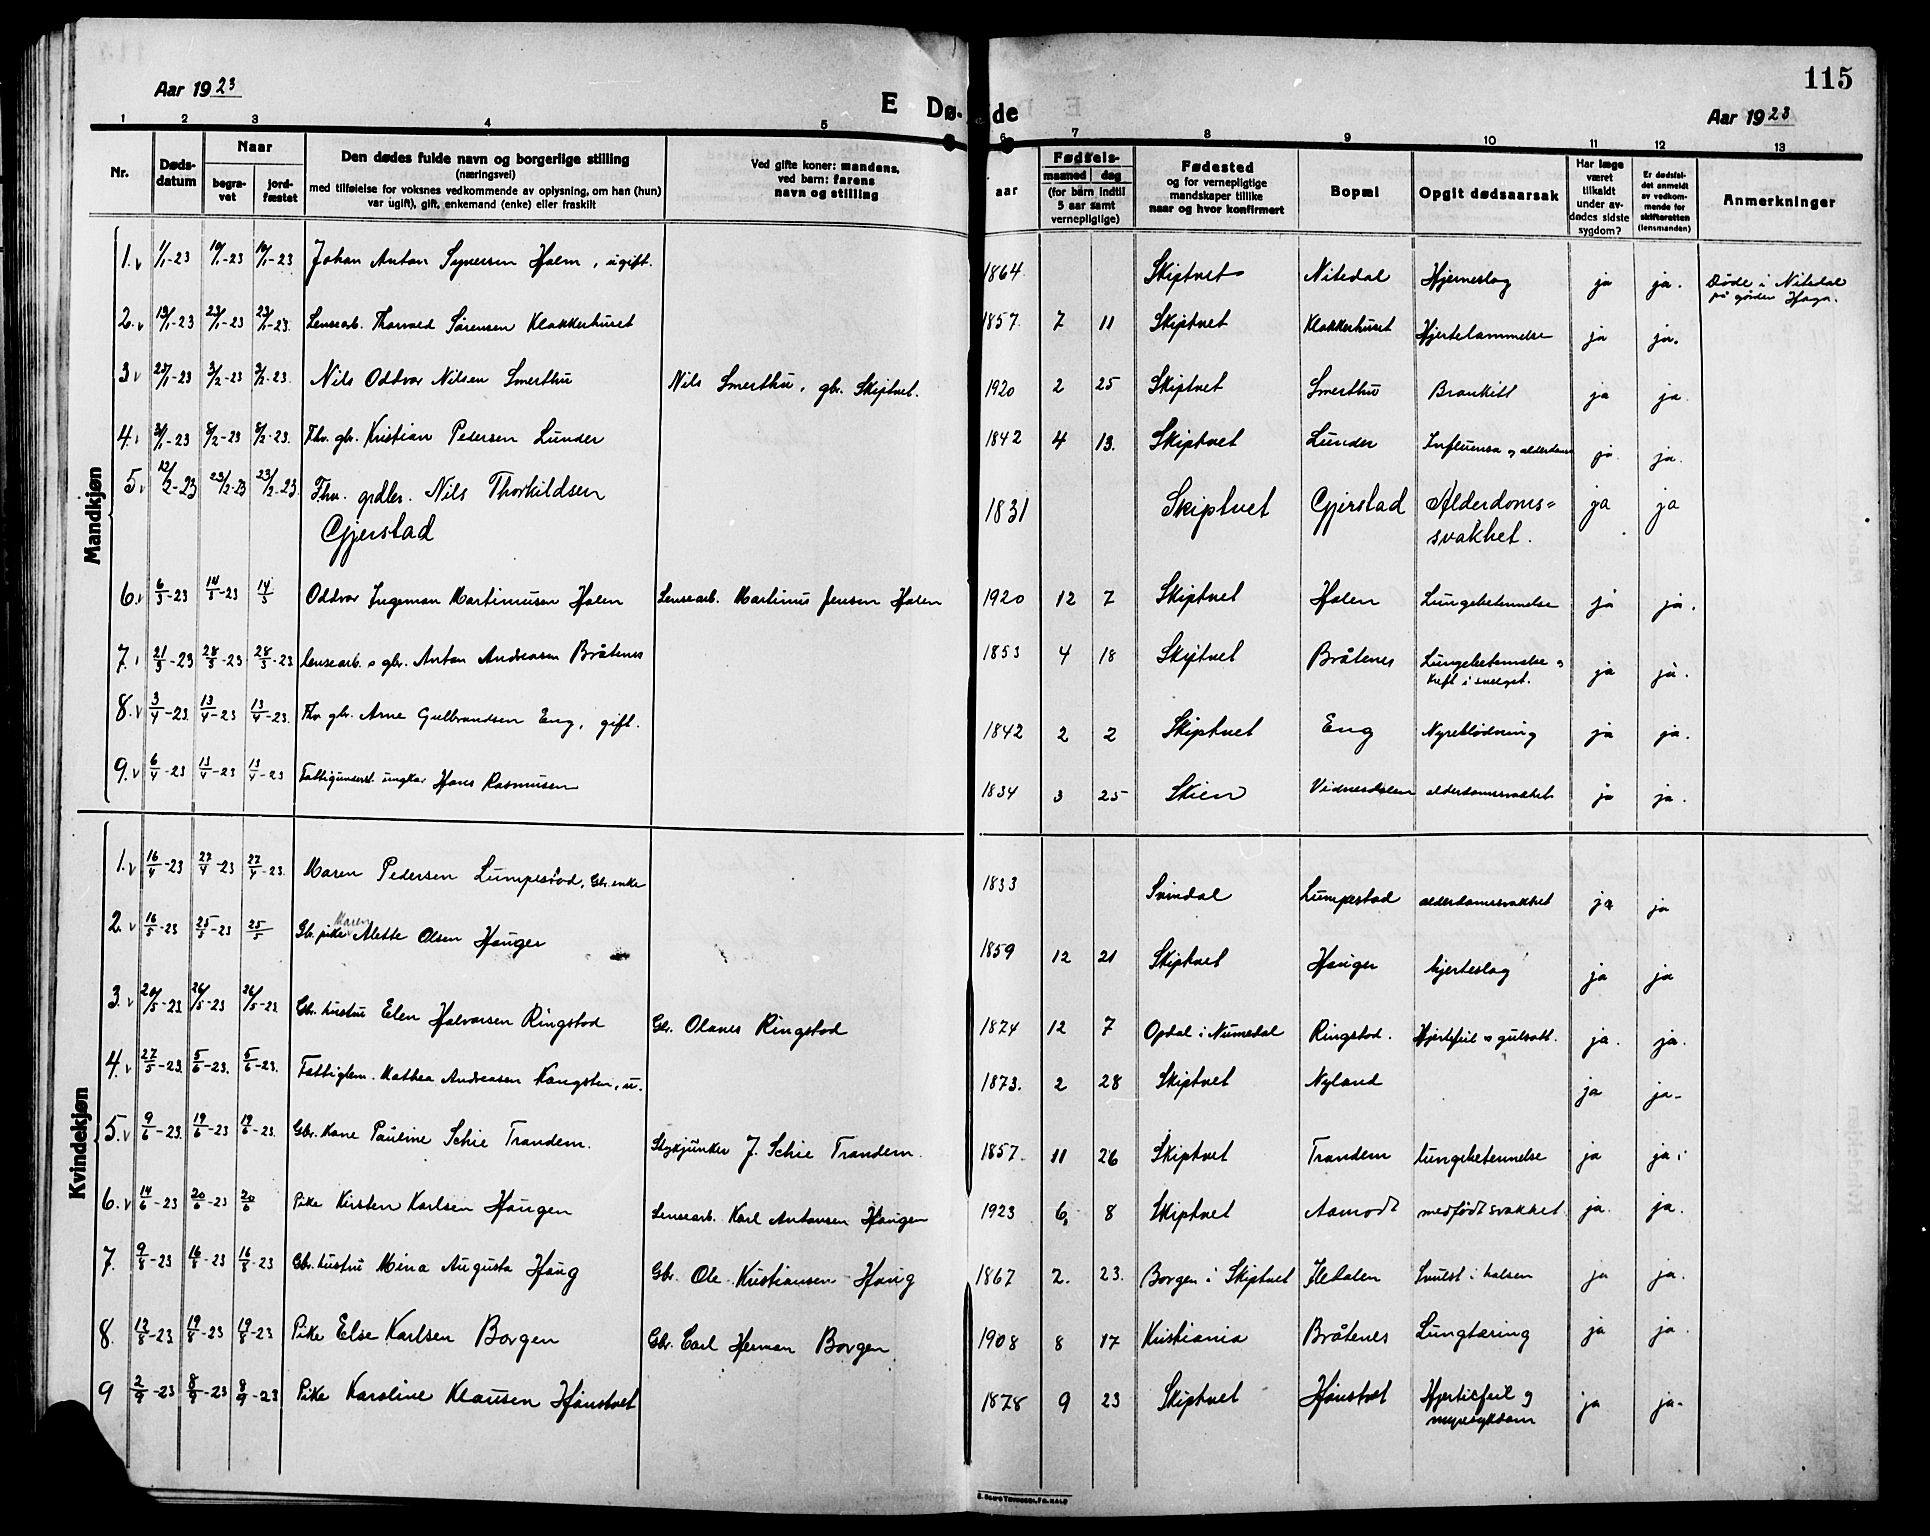 115
Aar 1923
E Dø- de
Aar 1923
1 2 3 4 5 6 7 8 9 10 11 12 13
Nr.
Døds-
datum
Naar
begra-
vet
jord-
fæstet
Den dødes fulde navn og borgerlige stilling
(næringsvei)
med tilføielse for voksnes vedkommende av oplysning, om han (hun)
var ugift), gift, enkemand (enke) eller fraskilt
Ved gifte koner: mandens,
ved barn: farens
navn og stilling
aar
Fødsels-
maaned dag
(for børn indtil
5 aar samt
vernepligtige)
Fødested
og for vernepligtige
mandskaper tillike
naar og hvor konfirmert
Bopæl
Opgit dødsaarsak
Har læge
været
tilkaldt
under av-
dødes sidste
sygdom?
Er dødsfal-
det anmeldt
av vedkom-
mende for
skifteretten
(lensmanden)
Anmerkninger
Mandkjøn
1. 1/1-23 10/1-23 10/1-23 Johan Anton Syversen Holm, ugift. 1864 Skiptvet Nitedal Hjerneslag ja ja. Døde i Nitedal
på gården Haga.
2. 13/1-23 23/1-23 23/1-23. Lensearb. Thorvald Sørensen Klokkerhuset 1857. 7 11 Skiptvet Klokkerhuset Hjertelammelse ja ja.
3 25/1-23 3/2-23 3/2-23. Nils Oddvar Nilsen Smerthu Nils Smerthu, gbr. Skiptvet. 1920 2 25 Skiptvet Smerthu Bronkitt ja ja.
4. 31/1-23 8/2-23 8/2-23. Fhv. gbr. Kristian Pedersen Lunder 1842 4 13. Skiptvet Lunder Influensa og alderdoms ja. ja.
5. 12/2-23 23/2-23 23/2-23. Fhv. grdbr. Nils Thorkildsen
Gjerstad 1831 Skiptvet Gjerstad Alderdoms=
svakhet. ja ja
6. 6/3-23 14/3-23 14/3 Oddvar Ingeman Martinusen Holen Lensearb. Martinus Jensen Holen 1920 12 7 Skiptvet Holen Lungebetennelse ja ja.
7. 21/3-23 28/3-23 28/3-23 Lensearb. o gbr. Anton Andreasen Bråtenes 1853 4 18 Skiptvet Bråtenes Lungebetennelse og
kreft i svelget. ja ja.
8. 3/4-23. 13/4-23 13/4-23. Fhv. gbr. Arne Gulbrandsen Eng, gift. 1842 2 2 Skiptvet Eng Nyreblødning ja ja.
9. 6/4-23 13/4-23 13/4-23 Fattigunderst. ungkar Hans Rasmusen 1834 3 25 Skien Vidnesdalen alderdomssvakhet ja ja.
Kvindekjøn
1. 16/4-23 27/4-23 27/4-23. Maren Pedersen Lumpestad, Gbr. enke 1833 Svindal Lumpestad alderdomssvakhet ja ja
Maren
2. 16/5-23 25/5-23 25/5 Gb. pike Mette Olsen Hauger 1859 12 21 Skiptvet Hauger hjerteslag ja ja
3. 20/5-23 26/5-23 26/5-23. Gbr. hustru Elen Halvorsen Ringstad Gbr. Olaves Ringstad 1874 12 7 Opdal i Numedal Ringstad. Hjertefeil og gulsott. ja. ja.
4. 27/5-23. 5/6-23. 5/6-23. Fattiglem. Mathea Andreasen Kongsten, u. 1873. 2 28 Skiptvet Nyland ja ja-
5. 9/6-23. 19/6-23 19/6-23. Gbr. Kone Pauline Schie Trandem. Stykjunker J. Schie Trandem. 1857. 11 26 Skiptvet Trandem lungebetennelse ja ja.
6. 14/6-23 20/6-23 20/6 Pike Kirsten Karlsen Haugen Lensearb. Karl Antonsen Haugen 1923 6 8 Skiptvet Aamodt medfødt svakhet. ja. ja.
7. 9/8-23 16/8-23 16/8-23 Gbr. hustru Mina Augusta Haug Gbr. Ole Kristiansen Haug 1867 2. 23. Borgen i Skiptvet Iledalen Svulst i halsen ja ja.
8. 12/8-23 19/8-23 19/8-23 Pike Else Karlsen Borgen Gbr. Carl Herman Borgen 1908 8 17 Kristiania Bråtenes Lungtæring ja ja.
9 2/9-23 8/9-23 8/9-23 Pike Karoline Klausen Hønstvet 1878 9 23 Skiptvet Hønstvet Hjertefeil og
nyresykdom ja ja.